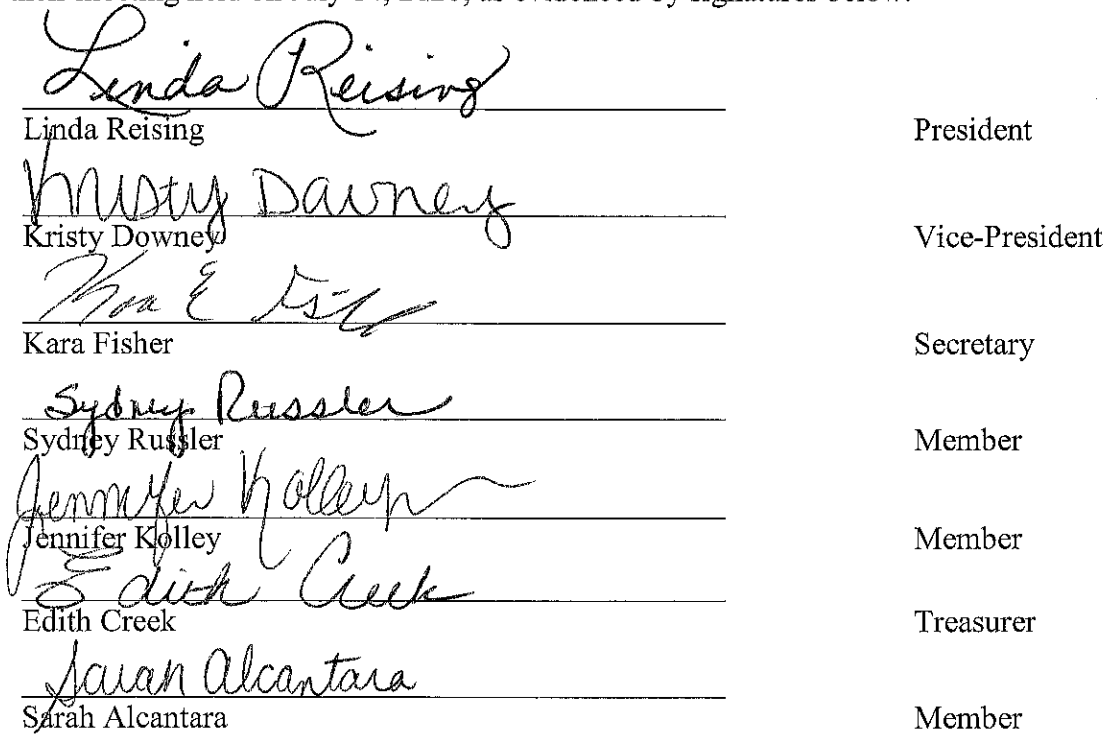 Linda Reising
Linda Reising President
Kristy Downey
Kristy Downey Vice-President
Kara E
Kara Fisher Secretary
Sydney Russler
Sydney Russler Member
Jennifer Kolley
Jennifer Kolley Member
Edith Creek
Edith Creek Treasurer
Sarah Alcantara
Sarah Alcantara Member